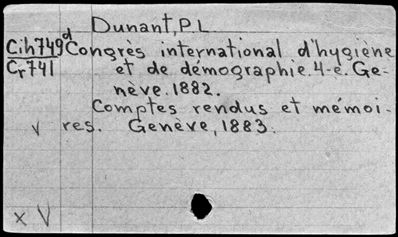 Dunant, P.L
Cih749d Congrès international d'hygiène
Cr741 et de démographie. 4-e. Ge-
nève. 1882.
Comptes rendus et mémoi-
v res. Genève, 1883.
x V